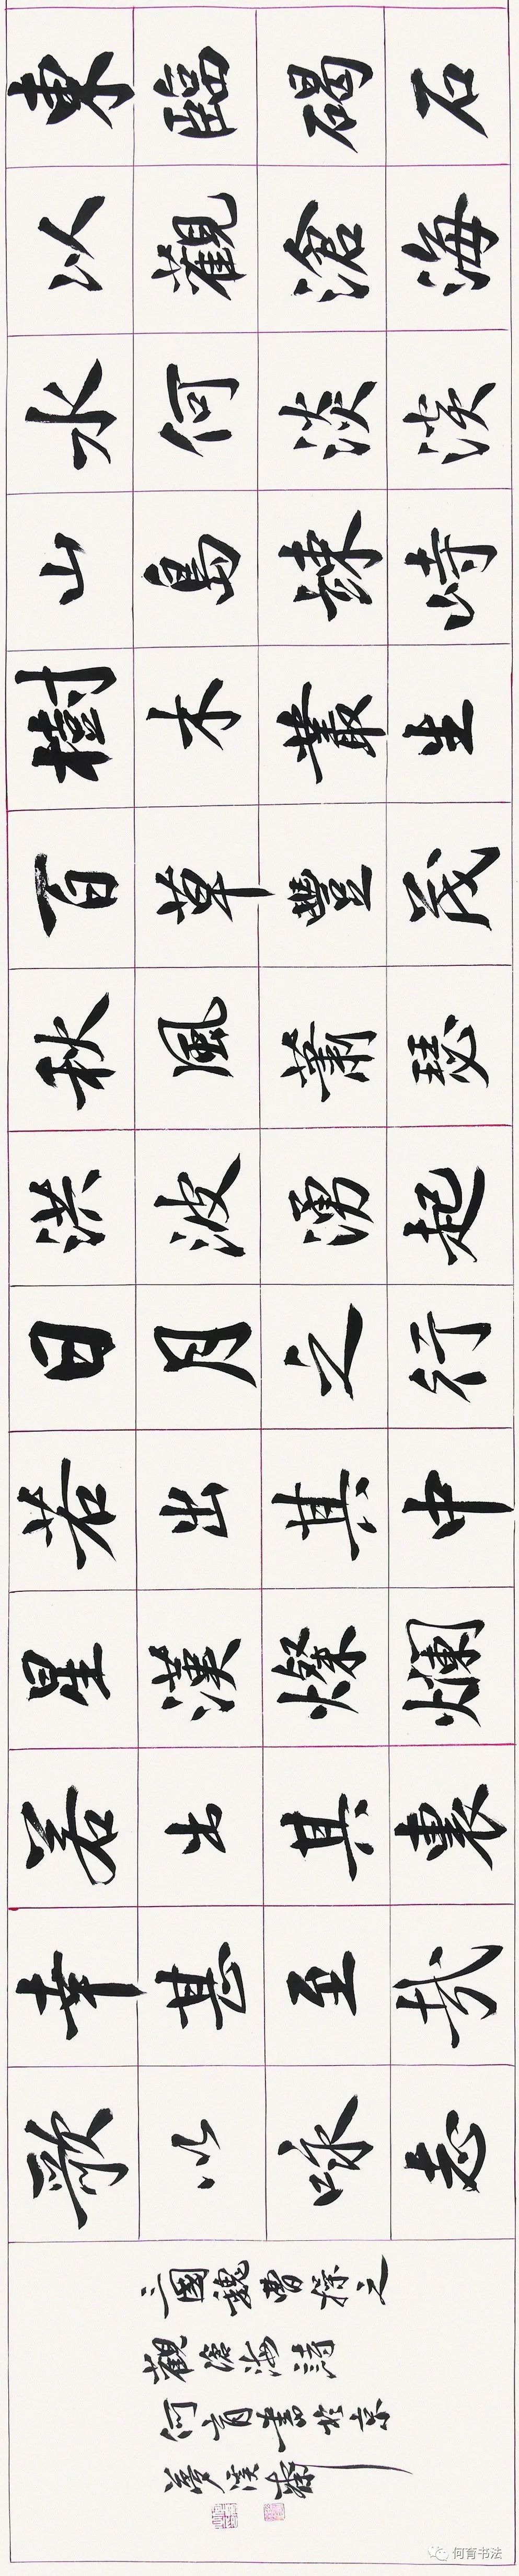 東臨碣石
以觀滄海
水何淡淡
山島竦峙
樹木叢生
百草豐茂
秋風蕭瑟
洪波湧起
日月之行
若出其中
星漢燦爛
若出其裏
幸甚至哉
歌以咏志
三國魏曹操之
觀滄海詩
何育書於京
夢溪齋
何育书法